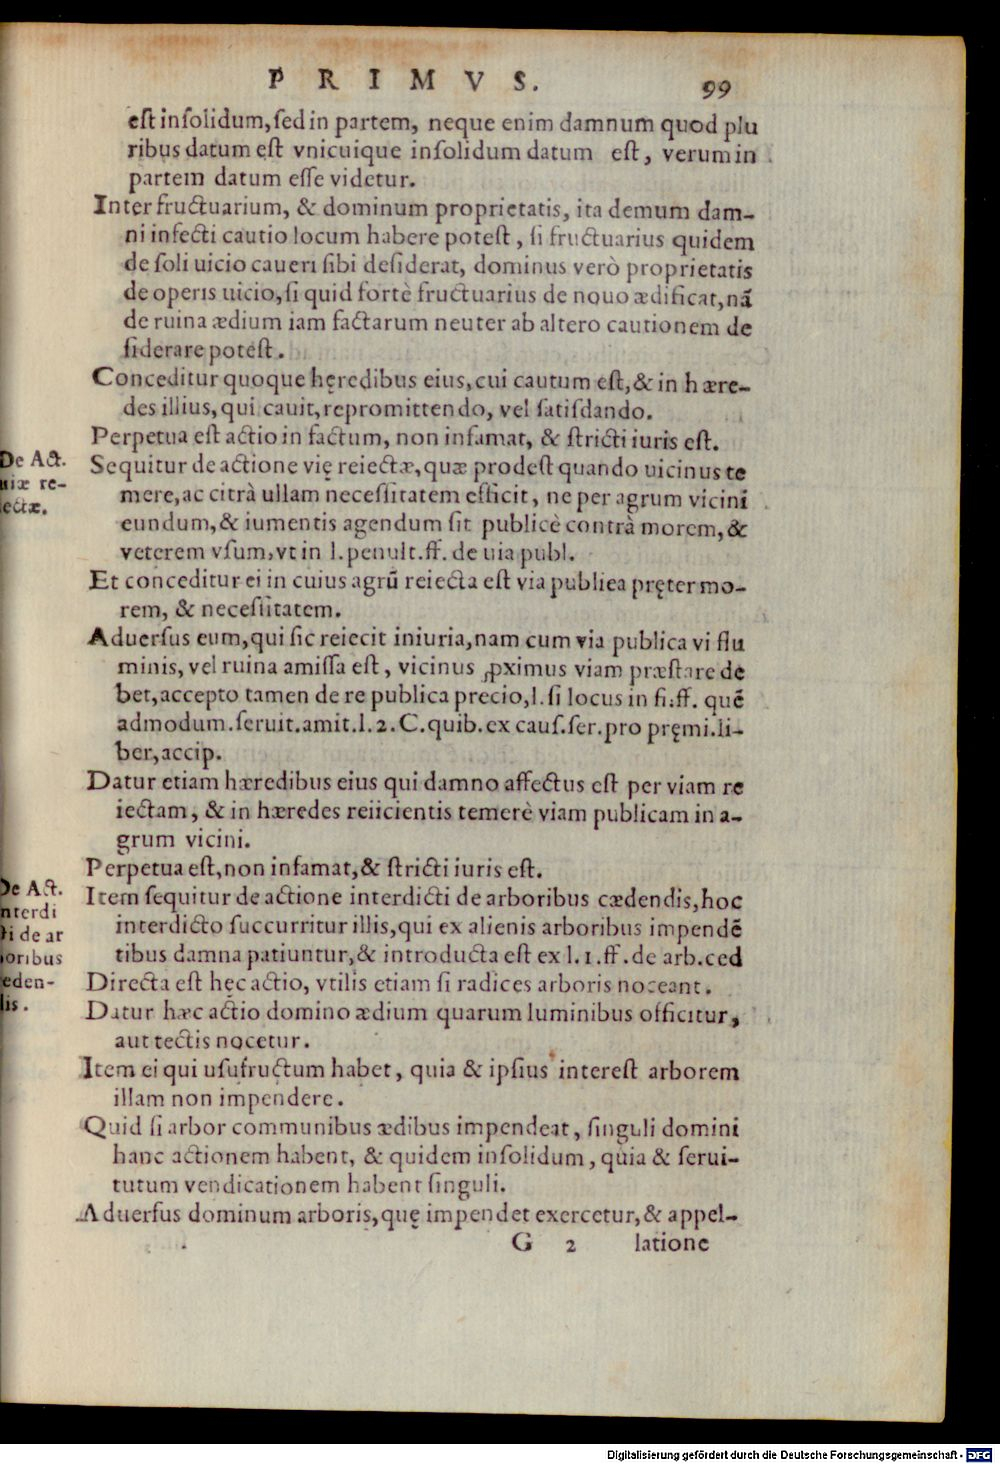 PRIMVS. 99
est insolidum, sed in partem, neque enim damnum quod plu
ribus datum est vnicuique insolidum datum est, verum in
partem datum esse videtur.
Inter fructuarium, & dominum proprietatis, ita demum dam-
ni infecti cautio locum habere potest, si fructuarius quidem
de soli uicio caueri sibi desiderat, dominus verò proprietatis
de operis uicio, si quid fortè fructuarius de nouo ædificat, nã
de ruina ædium iam factarum neuter ab altero cautionem de
siderare potest.
Conceditur quoque hęredibus eius, cui cautum est, & in hære-
des illius, qui cauit, repromittendo, vel satisdando.
Perpetua est actio in factum, non infamat, & stricti iuris est.
De Act.
uiæ re-
iectæ.
Sequitur de actione vię reiectæ, quæ prodest quando uicinus te
mere, ac citrà ullam necessitatem efficit, ne per agrum vicini
eundum, & iumentis agendum sit publicè contrà morem, &
veterem vsum, vt in l. penult. ff. de uia publ.
Et conceditur ei in cuius agrũ reiecta est via publica pręter mo-
rem, & necessitatem.
Aduersus eum, qui sic reiecit iniuria, nam cum via publica vi flu
minis, vel ruina amissa est, vicinus ꝓximus viam præstare de
bet, accepto tamen de re publica precio, l. si locus in fi. ff. quẽ
admodum. seruit. amit. l. 2. C. quib. ex caus. ser. pro pręmi. li-
ber, accip.
Datur etiam hæredibus eius qui damno affectus est per viam re
iectam, & in hæredes reiicientis temerè viam publicam in a-
grum vicini.
Perpetua est, non infamat, & stricti iuris est.
De Act.
nterdi
ti de ar
boribus
ceden-
dis.
Item sequitur de actione interdicti de arboribus cædendis, hoc
interdicto succurritur illis, qui ex alienis arboribus impendẽ
tibus damna patiuntur, & introducta est ex l. 1. ff. de arb. ced
Directa est hęc actio, vtilis etiam si radices arboris noceant.
Datur hæc actio domino ædium quarum luminibus officitur,
aut tectis nocetur.
Item ei qui usufructum habet, quia & ipsius interest arborem
illam non impendere.
Quid si arbor communibus ædibus impendeat, singuli domini
hanc actionem habent, & quidem insolidum, quia & serui-
tutum vendicationem habent singuli.
Aduersus dominum arboris, quę impendet exercetur, & appel-
G 2 latione
Digitalisierung gefördert durch die Deutsche Forschungsgemeinschaft - DFG